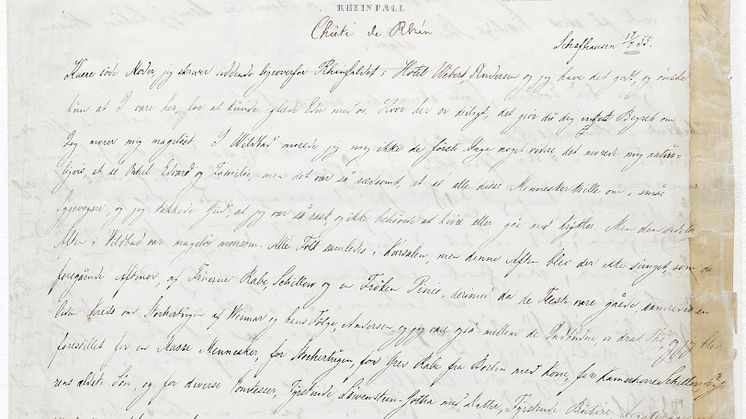 RHEINFALL
Chûte de Rhin
Schafhausen 17/7 55.
Kære søde Moder, jeg skriver siddende ligeoverfor Rhinfaldet i Hotel Weber. Andersen og jeg have det godt, og ønske
kun at I vare her, for at kunde glæde Eder med os. Hvor der er deiligt, det gior du dig Begreb om
Jeg morer mig mageløst. I Wildbad morede jeg mig ikke de første Dage noget videre, det morede mig natur-
ligviis, at see Onkel Edvard og Familie, men det var så sædsomt, at see alle disse Mennesker trille om i små
Sygevogne, og jeg takkede Gud, at jeg var så rask, og ikke behøvede at kiøre eller gåe med Krykker. Men den sidste
Aften i Wildbad var mageløs morsom. Alle Folk samledes i Kursalen, men denne Aften blev der ikke siunget, som de
foregående Aftener, af Fruerne Rabe, Schillow og en Frøken derimod da de fleste vare gåede, samledes en
liden Kreds om Storhertugen af Weimar og hans Følge, Andersen og jeg vare også mellem de Indbudne, vi drak The, og jeg blev
forestillet for en Masse Mennesker, for Storhertugen, for Grev Rabe fra Berlin med Kone, for Kammerherre Schillers
ældste Søn, og for diverse Comtesser, Fyrstinde Löwenstein med Datter, Fyrstinde